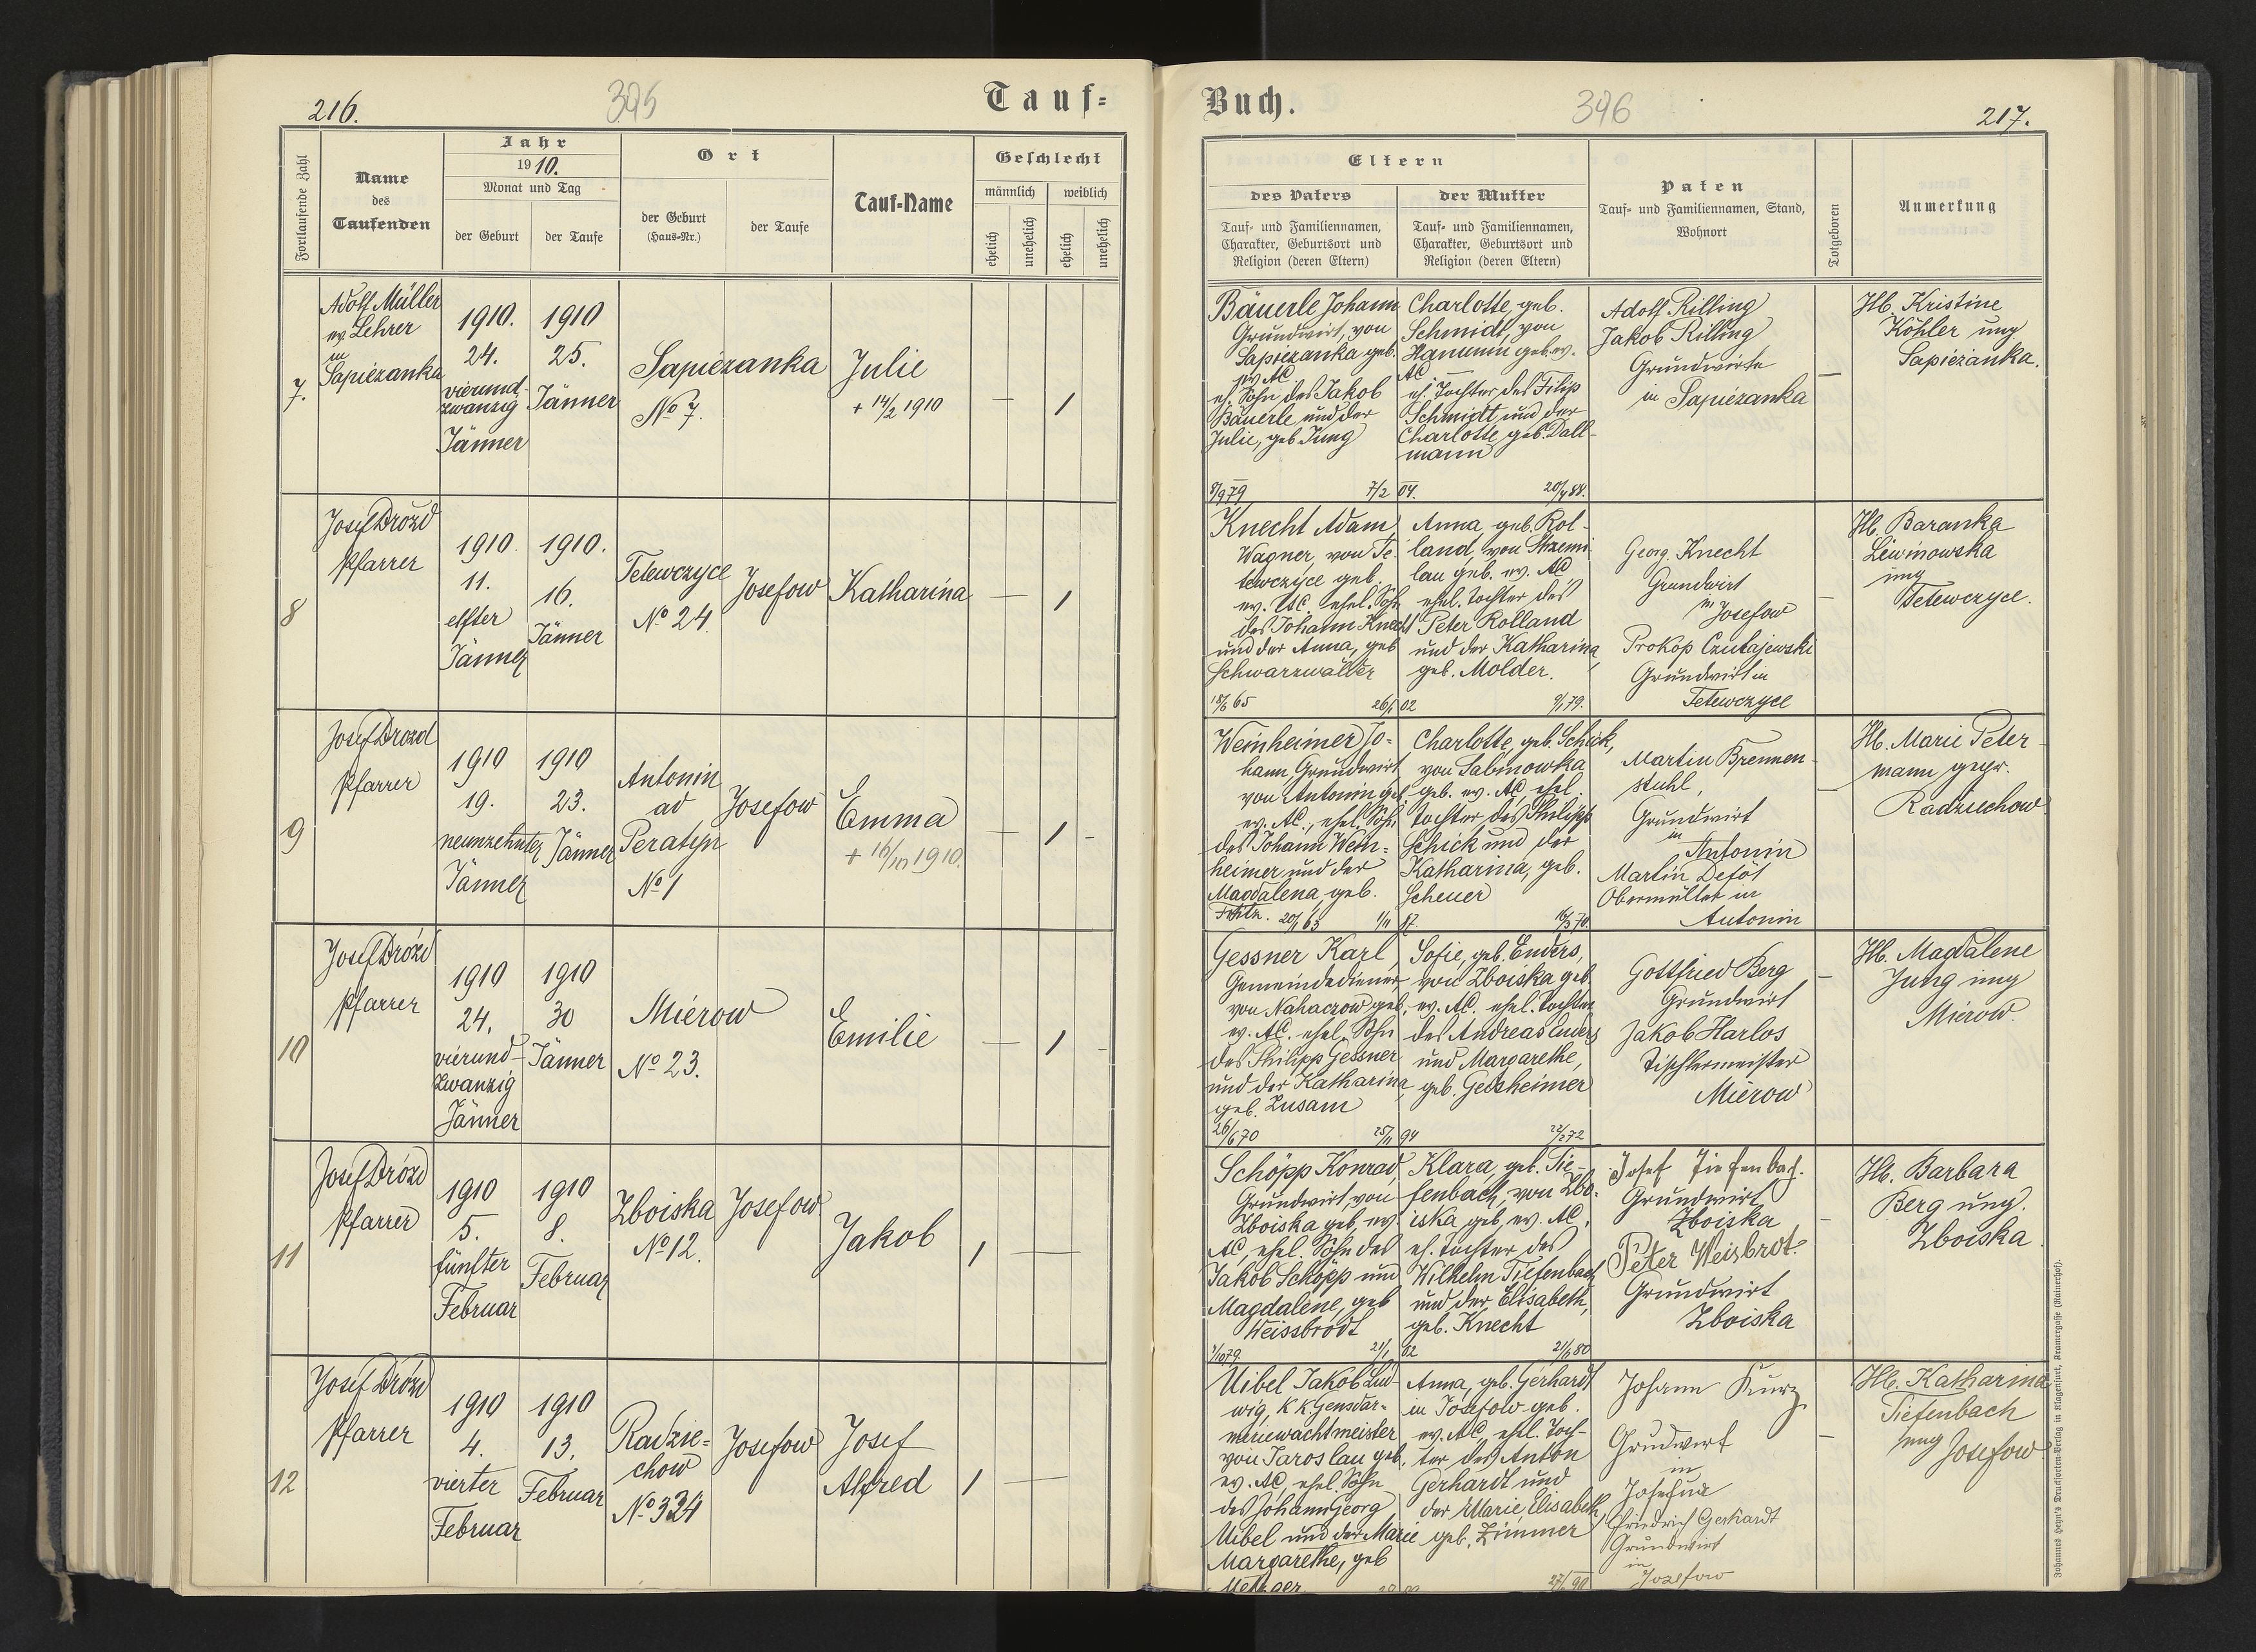 216.
395
Tauf=
Fortlaufende Zahl
Name
des
Taufenden
Jahr
1910.
Monat und Tag
der Geburt
der Taufe
Ort
der Geburt
(Haus-Nr.)
der Taufe
Tauf-Name
Geschlecht
männlich
weiblich
ehelich
unehelich
ehelich
unehelich
7.
Adolf Müller
ev. Lehrer
in
Sapiezanka
1910.
24.
vierund-
zwanzig
Jänner
1910
25.
Jänner
Sapiezanka
No 7.
Julie
+ 14/2 1910
— 1
8
Josef Drozd
Pfarrer
1910.
11.
elfter
Jänner
1910.
16.
Jänner
Tetewczyce
No 24.
Josefow
Katharina
— 1
9
Josef Drozd
Pfarrer
1910
19.
neunzehnter
Jänner
1910
23.
Jänner
Antonin
ad
Peratyn
No 1
Josefow
Emma
+ 16/10 1910.
— 1 -
10
Josef Drózd
Pfarrer
1910
24.
vierund-
zwanzig
Jänner
1910
30
Jänner
Mierow
No 23.
Emilie
— 1 -
11
Josef Drózd
Pfarrer
1910
5.
fünfter
Februar
1910
8.
Februar
Zboiska
No 12.
Josefow
Jakob
1 —
12
Josef Drózd
Pfarrer
1910
4.
vierter
Februar
1910
13.
Februar
Radzie=
chow
No 334
Josefow
Josef
Alfred
1 —
Buch.
396
217.
Eltern
des Vaters
Tauf- und Familiennamen,
Charakter, Geburtsort und
Religion (deren Eltern)
der Mutter
Tauf- und Familiennamen,
Charakter, Geburtsort und
Religion (deren Eltern)
Paten
Tauf- und Familiennamen, Stand,
Wohnort
Totgeboren
Anmerkung
Bäuerle Johann
Grundwirt, von
Sapiezanka geb.
ev. AC
eh. Sohn des Jakob
Bäuerle und der
Julie, geb. Jung
7/2 04.
Charlotte, geb.
Schmidt, von
Hanunin geb. ev.
AC. —
eh. Tochter des Filip
Schmidt und der
Charlotte geb. Dall-
mann
Adolf Rilling
Jakob Rilling
Grundwirte
in Sapiezanka
—
Hb. Kristine
Köhler ung
Sapiezanka.
Knecht Adam
Wagner, von Te-
tewczyce geb.
ev. AC. ehel. Sohn
des Johann Knecht
und der Anna, geb
Schwarzwälder
Anna geb. Rol-
land, von Stremi
lau geb. ev. AC
ehel. Tochter des
Peter Rolland
und der Katharina,
geb. Molder.
Georg Knecht
Grundwirt
in Josefow
Prokop Czulajewski
Grundwirt in
Tetewczyce
—
Hb. Baranka
Lewinowska
ung
Tetewczyce.
Weinheimer Jo=
hann Grundwirt
von Antonin geb
ev. AC., ehel. Sohn
des Johann Wein=
heimer und der
Magdalena, geb.
Charlotte, geb. Schick,
von Sabinowka
geb. ev. AC, ehel.
Tochter des Philipp
Schick und der
Katharina, geb.
Scheuer
Martin Brennen-
stuhl,
Grundwirt
in
Antonin
Martin
Obermüller in
Antonin
—
Hb. Marie Peter-
mann gepr.
Radziechow
Gessner Karl,
Gemeindediener
von Nahaczow geb.
ev. AC. ehel. Sohn
des Philipp Gessner
und der Katharina,
geb. Zusam
26/6 70
Sofie, geb. Enders,
von Zboiska geb
ev. AC. ehel. Tochter
des Andreas Enders
und Margarethe,
geb. Geisheimer
Gottfried Berg
Grundwirt
Jakob Harlos
Tischlermeister
Mierow
—
Hb. Magdalene
Jung ung
Mierow.
Schöpp Konrad,
Grundwirt, von
Zboiska geb, ev.
AC, ehel. Sohn des
Jakob Schöpp und
Magdalene, geb
Weissbrodt
Klara, geb. Tie-
fenbach, von Zbo-
iska geb, ev. AC,
eh. Tochter des
Wilhelm Tiefenbach
und der Elisabeth,
geb. Knecht
Josef Tiefenbach.
Grundwirt
Zboiska
Peter Weisbrot.
Grundwirt
Zboiska
—
Hb. Barbara
Berg ung.
Zboiska.
Uibel Jakob Lud-
wig, K K Gensdar-
meriewachtmeister
von Jaroslau geb.
ev. AC, ehel. Sohn
des Johann Georg
Uibel und der Marie
Margarethe, geb
Metzger.
Anna, geb. Gerhardt
in Josefow geb.
ev. AC, ehel. Toch-
ter des Anton
Gerhardt und
der Marie Elisabeth,
geb. Zimmer
Johann Kurz
Grundwirt
in
Josefow
Friedrich Gerhardt
Grundwirt
in
Josefow
—
Hb. Katharina
Tiefenbach
ung Josefow
Johannes Heyn's Drucksorten-Verlag in Klagenfurt, Kramergasse (Rainerhof).